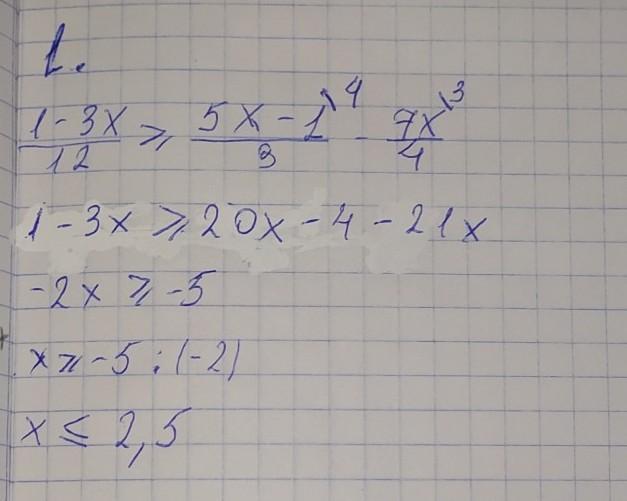 1.
(1-3x)/12 ≥ (5x-1)/3 \4 - 7x/4 \3
1-3x ≥ 20x-4-21x
-2x ≥ -5
x ≥ -5 : (-2)
x ≤ 2,5